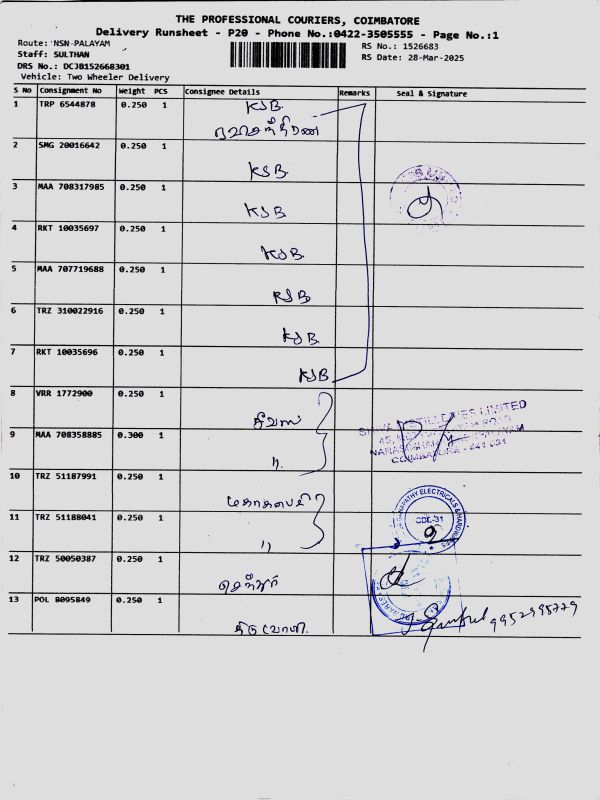 THE PROFESSIONAL COURIERS, COIMBATORE
Delivery Runsheet - P20 - Phone No.:0422-3505555 - Page No.:1
Route: NSN-PALAYAM
RS No.: 1526683
Staff: SULTHAN
RS Date: 28-Mar-2025
DRS No.: DCJB152668301
Vehicle: Two Wheeler Delivery
S No Consignment No Weight PCS Consignee Details Remarks Seal & Signature
1 TRP 6544878 0.250 1 KSB.
2 SMG 20016642 0.250 1 KSB.
3 MAA 708317985 0.250 1 KSB
4 RKT 10035697 0.250 1 KSB.
5 MAA 707719688 0.250 1 KSB
6 TRZ 310022916 0.250 1 KSB.
7 RKT 10035696 0.250 1 KSB
8 VRR 1772900 0.250 1
LIMITED
9 MAA 708358885 0.300 1 "
COIMBATORE - 641 031
10 TRZ 51187991 0.250 1
GANAPATHY ELECTRICALS & HARDWARES
CBE-31
11 TRZ 51188041 0.250 1 "
12 TRZ 50050387 0.250 1
13 POL 8095849 0.250 1
9952995779